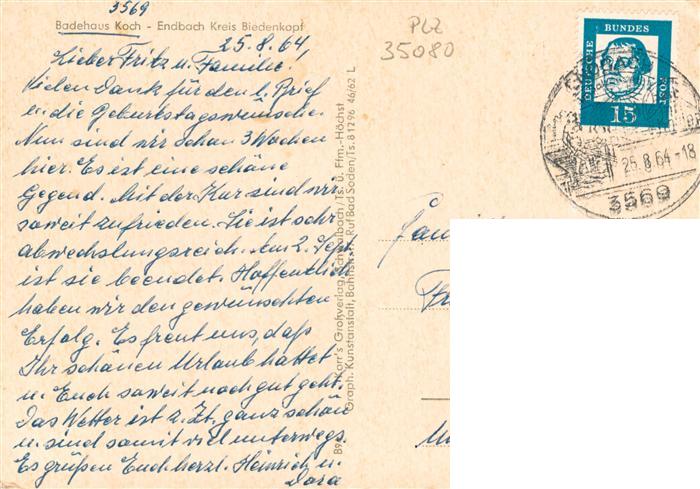 3569
Badehaus Koch - Endbach Kreis Biedenkopf
25.8.64,
Lieber Fritz u. Familie.
Vielen Dank für den l. Brief
u. die Geburtstagswünsche.
Nun sind wir schon 3 Wochen
hier. Es ist eine schöne
Gegend. Mit der Kur sind wir
soweit zufrieden. Sie ist sehr
abwechslungsreich. Am 2. Sept.
ist sie beendet. Hoffentlich
haben wir den gewünschten
Erfolg. Es freut uns, daß
Ihr schönen Urlaub hattet
u. Euch soweit noch gut geht.
Das Wetter ist z. Zt. ganz schön
u. sind somit viel unterwegs
Es grüßen Euch herzl. Heinrich u.
Dora
Karr's Großverlag, Schwalbach/Ts. ü. Ffm.-Höchst
Graph. Kunstanstalt, Bahnstr. Ruf Bad Soden/Ts. 81296 46/62 L
PLZ
35080
DEUTSCHE BUNDES POST
15
25.8.64-18
3569
Fam